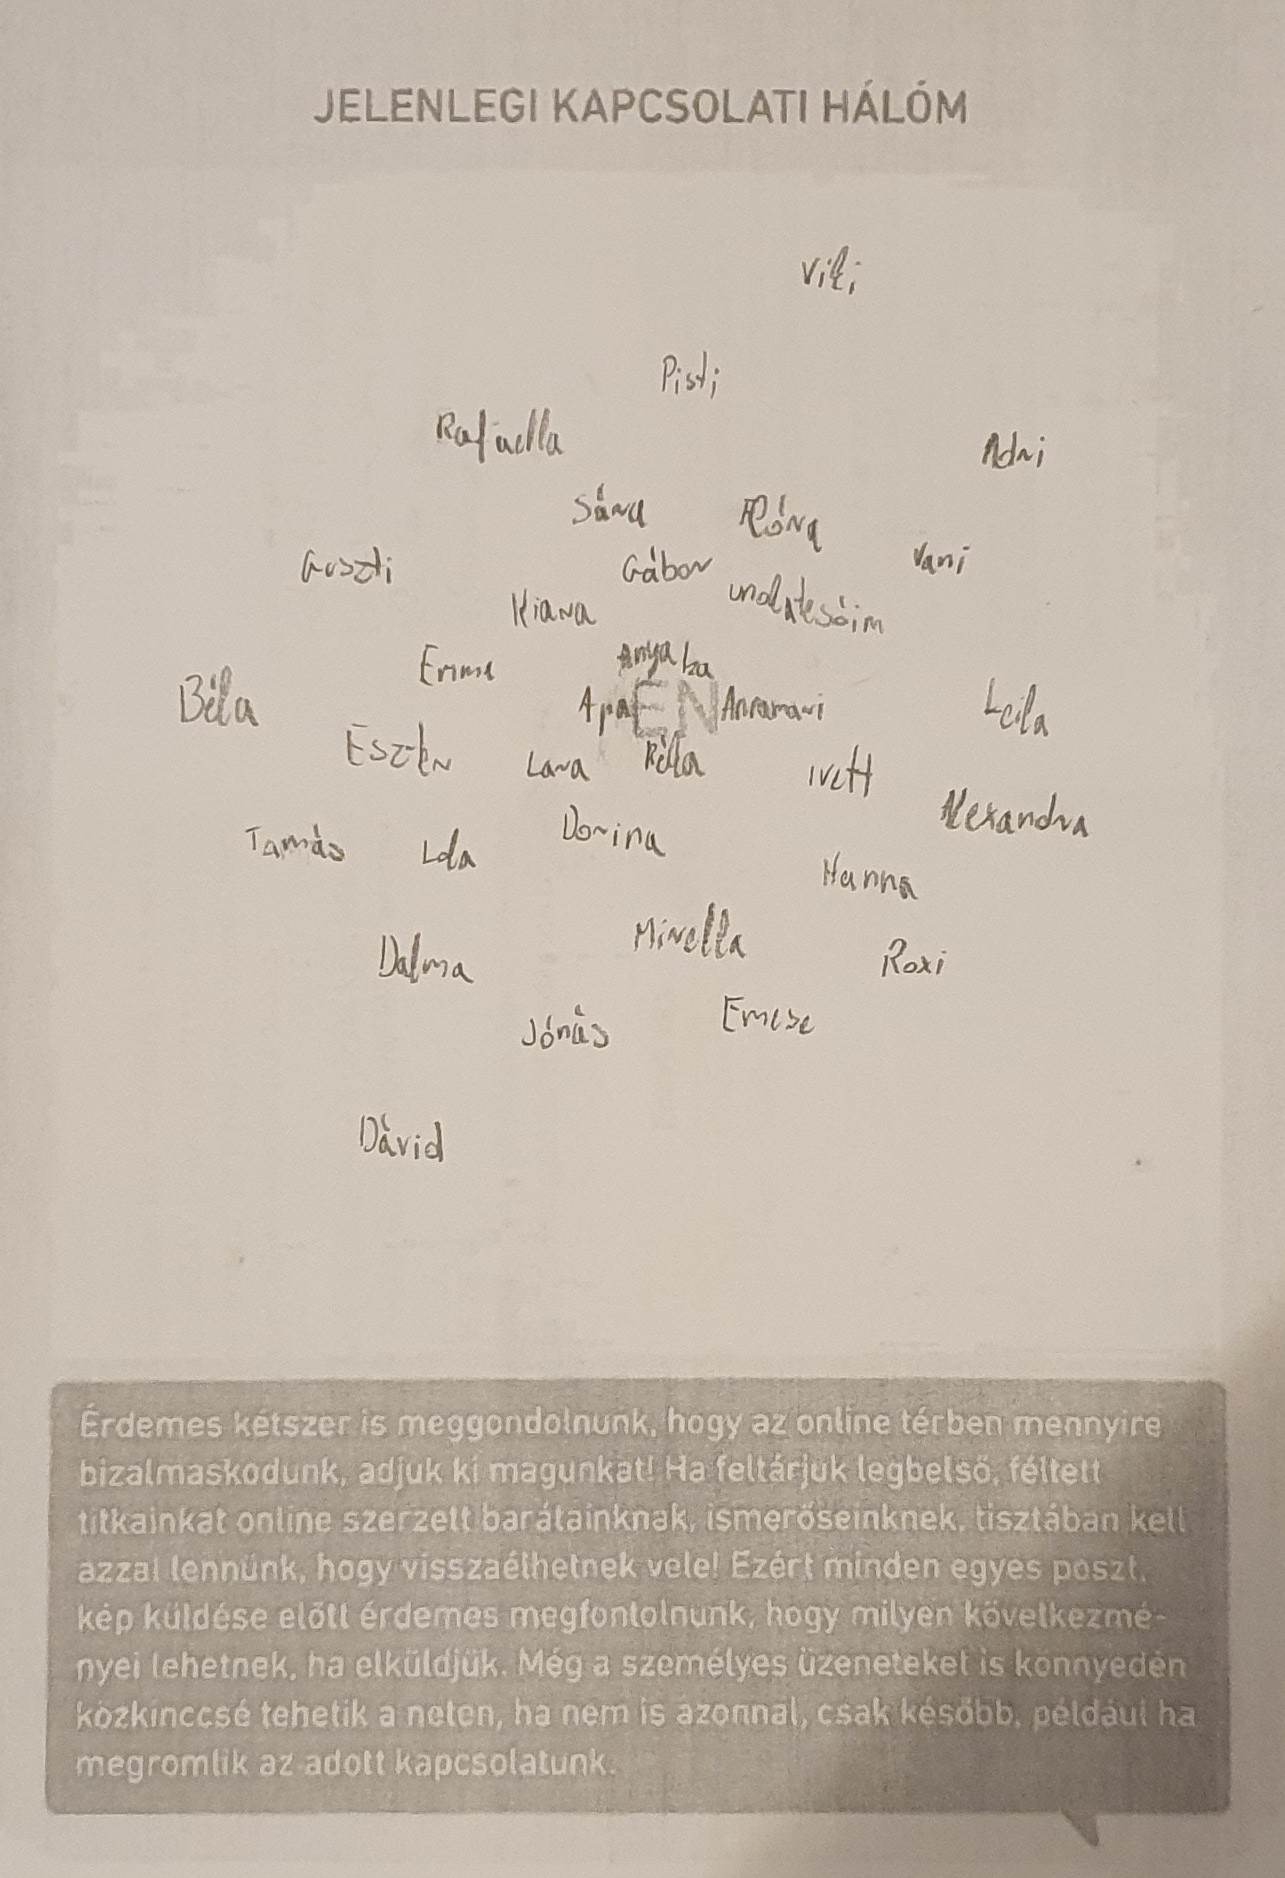 JELENLEGI KAPCSOLATI HÁLÓM
Viki
Pisti
Rafaella
Adri
Sára
Flóra
Guszti
Gábor
Vani
Kiara
unokatesóim
Emma
Anya
Béla
Apa
ÉN
Annamari
Leila
Eszter
Lara
Réka
Ivett
Alexandra
Tamás
Lola
Dorina
Hanna
Mirella
Dalma
Roxi
Jónás
Emese
Dávid
Érdemes kétszer is meggondolnunk, hogy az online térben mennyire
bizalmaskodunk, adjuk ki magunkat! Ha feltárjuk legbelső, féltett
titkainkat online szerzett barátainknak, ismerőseinknek, tisztában kell
azzal lennünk, hogy visszaélhetnek vele! Ezért minden egyes poszt,
kép küldése előtt érdemes megfontolnunk, hogy milyen következmé-
nyei lehetnek, ha elküldjük. Még a személyes üzeneteket is könnyedén
közkinccsé tehetik a neten, ha nem is azonnal, csak később, például ha
megromlik az adott kapcsolatunk.